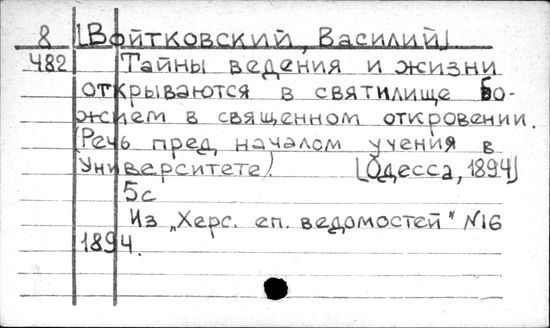 8 [Войтковский, Василий]
482 Тайны ведения и жизни
открываются в святилище Бо-
жием в священном откровении.
(Речь пред началом учения в
Университете). [Одесса, 1894]
5с
Из „Херс. еп. ведомостей" №16
1894.